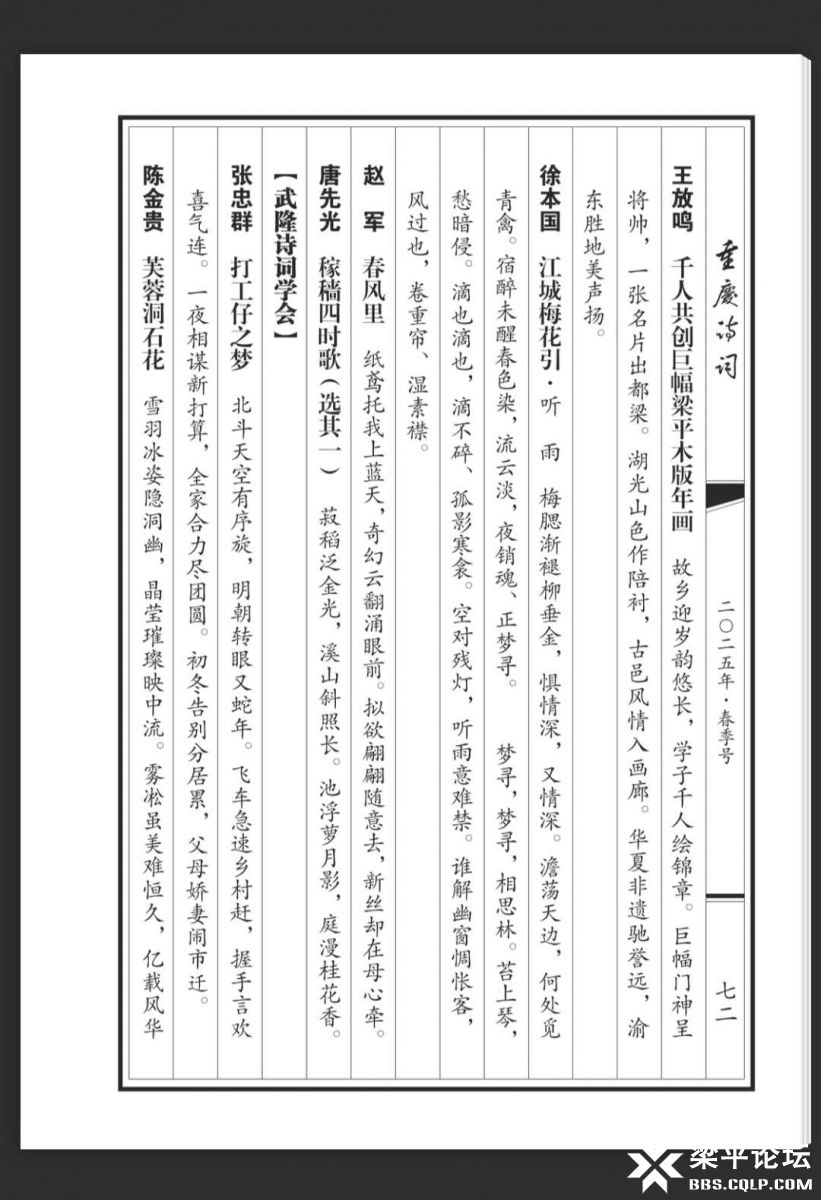 重庆诗词
二〇二五年·春季号
七二
王放鸣 千人共创巨幅梁平木版年画 故乡迎岁韵悠长,学子千人绘锦章。巨幅门神呈
将帅,一张名片出都梁。湖光山色作陪衬,古邑风情入画廊。华夏非遗驰誉远,渝
东胜地美声扬。
徐本国 江城梅花引·听 雨 梅腮渐褪柳垂金,惧情深,又情深。澹荡天边,何处觅
青禽。宿醉未醒春色染,流云淡,夜销魂、正梦寻。 梦寻,梦寻,相思林。苔上琴,
愁暗侵。滴也滴也,滴不碎、孤影寒衾。空对残灯,听雨意难禁。谁解幽窗惆怅客,
风过也,卷重帘、湿素襟。
赵 军 春风里 纸鸢托我上蓝天,奇幻云翻涌眼前。拟欲翩翩随意去,新丝却在母心牵。
唐先光 稼穑四时歌(选其一) 菽稻泛金光,溪山斜照长。池浮萝月影,庭漫桂花香。
【武隆诗词学会】
张忠群 打工仔之梦 北斗天空有序旋,明朝转眼又蛇年。飞车急速乡村赶,握手言欢
喜气连。一夜相谋新打算,全家合力尽团圆。初冬告别分居累,父母娇妻闹市迁。
陈金贵 芙蓉洞石花 雪羽冰姿隐洞幽,晶莹璀璨映中流。雾凇虽美难恒久,亿载风华
梁平论坛
BBS.CQLP.COM